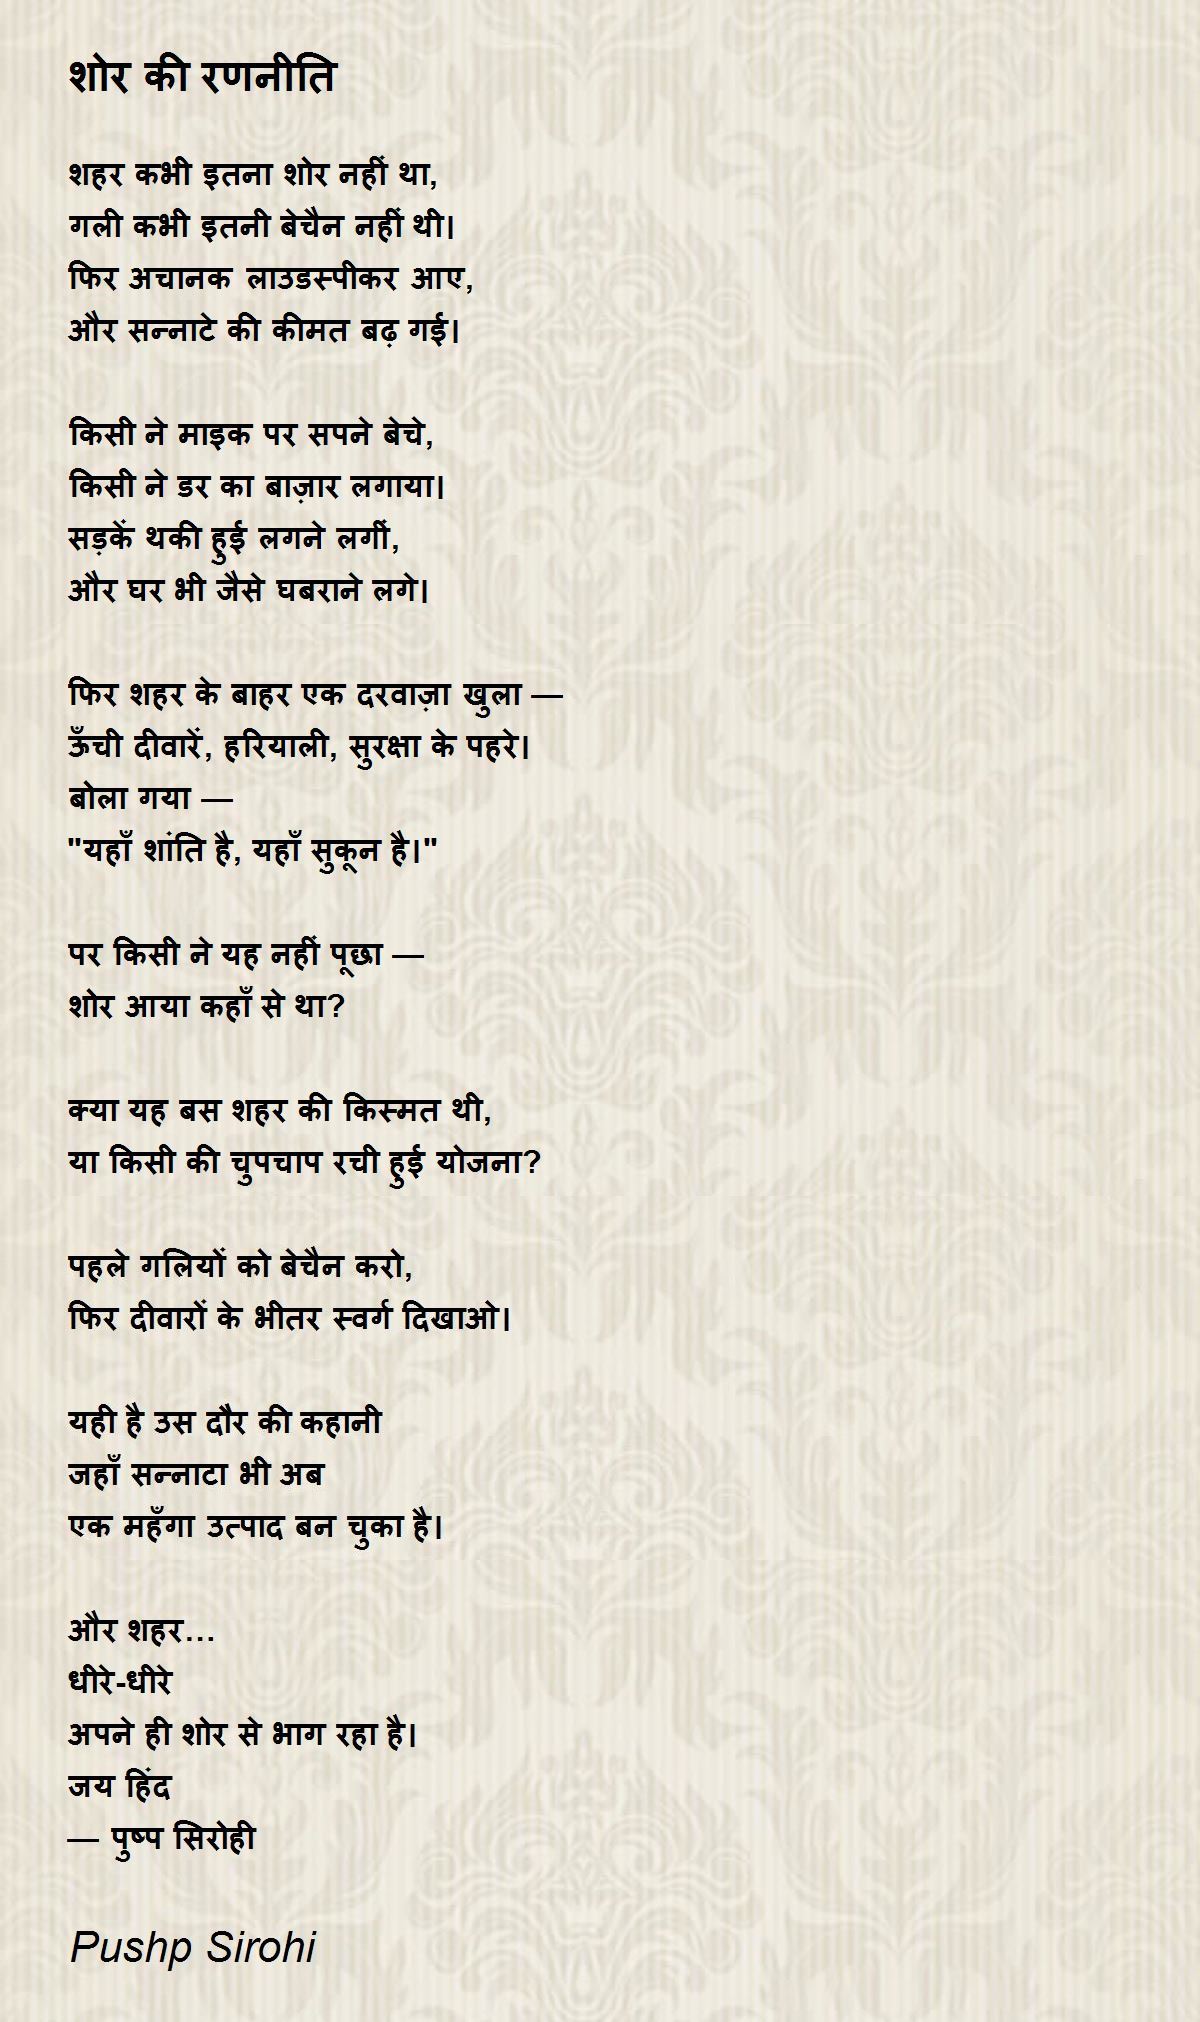 शोर की रणनीति
शहर कभी इतना शोर नहीं था,
गली कभी इतनी बेचैन नहीं थी।
फिर अचानक लाउडस्पीकर आए,
और सन्नाटे की कीमत बढ़ गई।
किसी ने माइक पर सपने बेचे,
किसी ने डर का बाज़ार लगाया।
सड़कें थकी हुई लगने लगीं,
और घर भी जैसे घबराने लगे।
फिर शहर के बाहर एक दरवाज़ा खुला —
ऊँची दीवारें, हरियाली, सुरक्षा के पहरे।
बोला गया —
"यहाँ शांति है, यहाँ सुकून है।"
पर किसी ने यह नहीं पूछा —
शोर आया कहाँ से था?
क्या यह बस शहर की किस्मत थी,
या किसी की चुपचाप रची हुई योजना?
पहले गलियों को बेचैन करो,
फिर दीवारों के भीतर स्वर्ग दिखाओ।
यही है उस दौर की कहानी
जहाँ सन्नाटा भी अब
एक महँगा उत्पाद बन चुका है।
और शहर...
धीरे-धीरे
अपने ही शोर से भाग रहा है।
जय हिंद
— पुष्प सिरोही
Pushp Sirohi